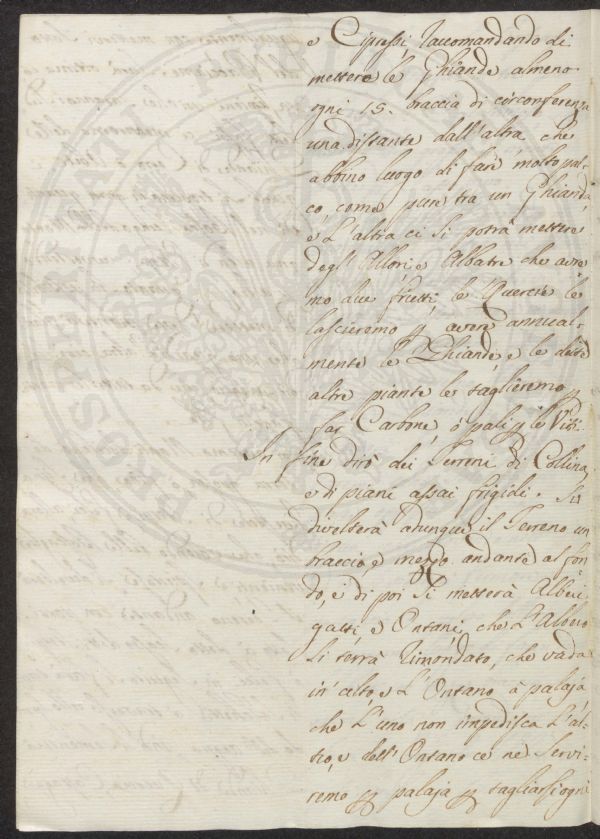 e Cipressi, raccomandando di
mettere le Ghiande almeno
ogni 15. braccia di circonferenza
una distante dall'altra, che
abbino luogo di fare molto pal-
co, come pure tra un Ghianda,
e L'altra ci si potrà mettere
degl'Allori, e Albatre che avre
mo due frutti, le Quercie le
lascieremo p avere annual-
mente le Ghiande, e le dette
altre piante le taglieremo p
far Carbone, ò pali p le Viti.
In fine dirò dei Terreni di Collina
e di piani assai frigidi. Si
divolterà adunque il Terreno un
braccio, e mezzo andante al fon
do, e di poi si metterà Alberi
gatti e Ontani, che L'Albero
si terrà rimondato, che vada
in alto, e L'Ontano à palaja,
che L'uno non impedisca L'al-
tro, e dell'Ontano ce ne servi-
remo p palaja p tagliarsi ogni
PROSPERITATI